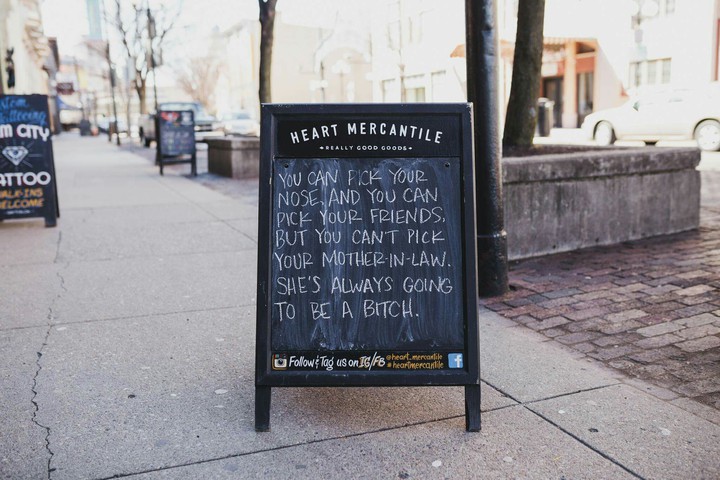 HEART MERCANTILE
REALLY GOOD GOODS
YOU CAN PICK YOUR
NOSE, AND YOU CAN
PICK YOUR FRIENDS,
BUT YOU CAN'T PICK
YOUR MOTHER-IN-LAW.
SHE'S ALWAYS GOING
TO BE A BITCH.
Follow & Tag us on IG/FB @heart_mercantile
#heartmercantile
CITY
TATTOO
WALK-INS
WELCOME